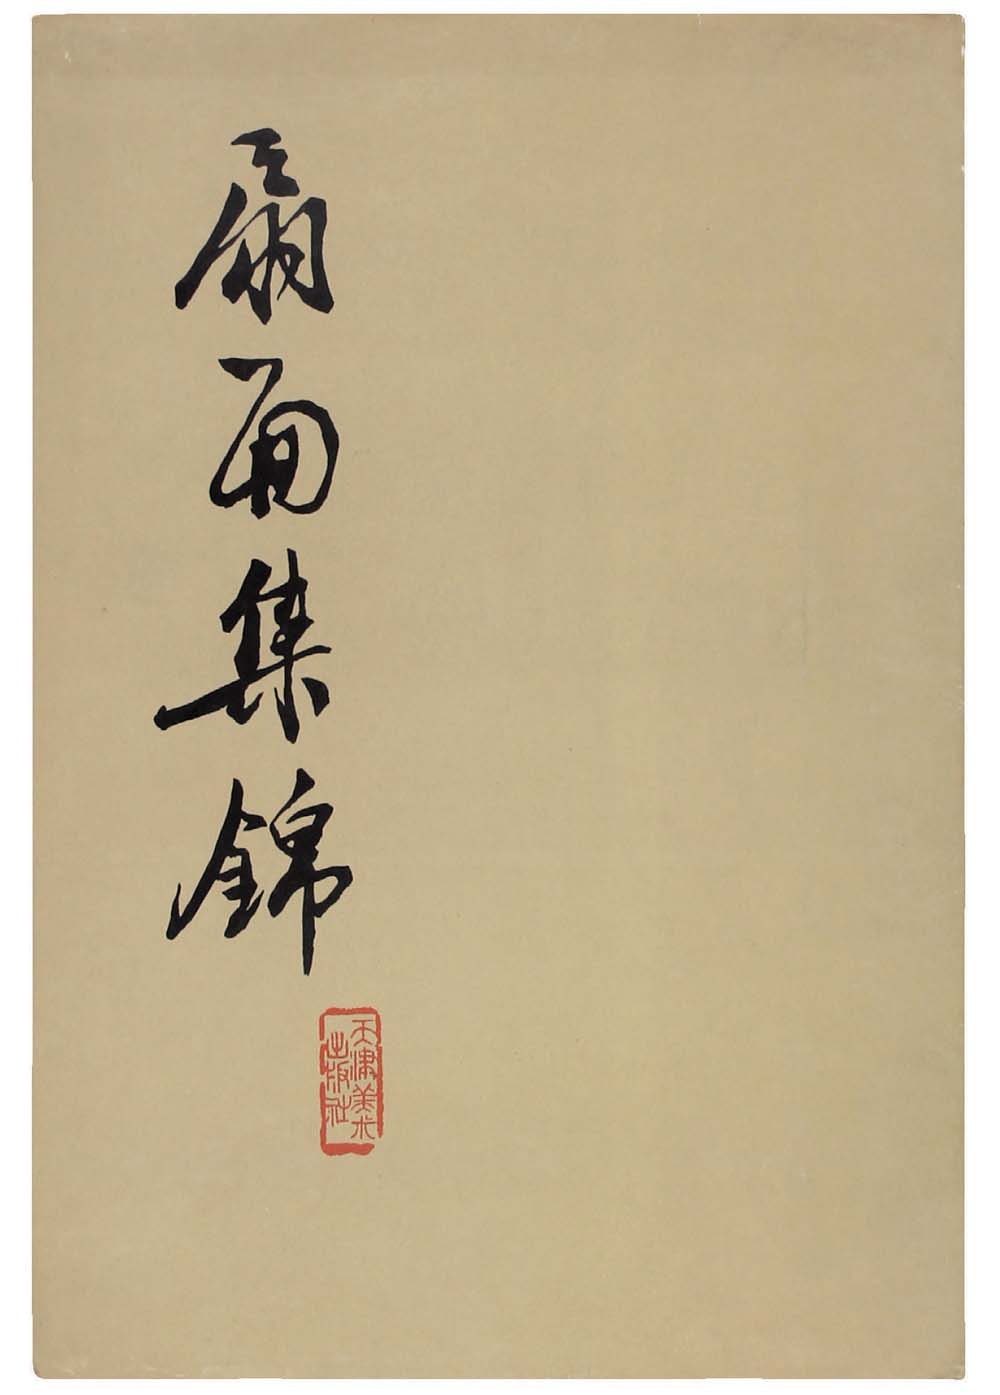 扇面集錦
天津美术
出版社